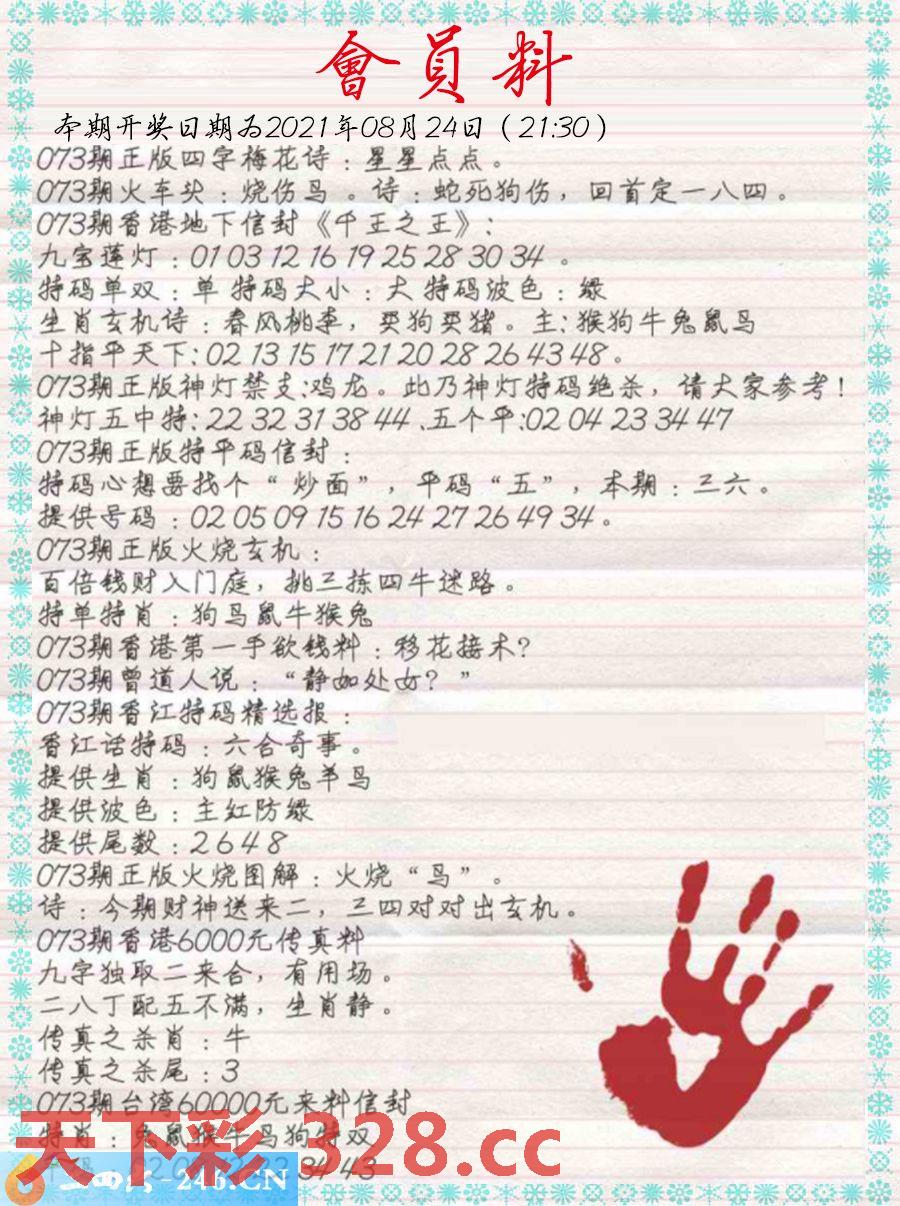 會員料
本期开奖日期为2021年08月24日（21:30）
073期正版四字梅花诗：星星点点。
073期火车头：烧伤鸟 。诗：蛇死狗伤，回首定一八四。
073期香港地下信封《千王之王》:
九宝莲灯：01 03 12 16 19 25 28 30 34 。
特码单双：单 特码大小：大 特码波色：绿
生肖玄机诗：春风桃李，买狗买猪。主:猴狗牛兔鼠鸟
十指平天下:02 13 15 17 21 20 28 26 43 48。
073期正版神灯禁支:鸡龙。此乃神灯特码绝杀，请大家参考！
神灯五中特:22 32 31 38 44 、五个平:02 04 23 34 47
073期正版特平码信封：
特码心想要找个“ 炒面”，平码“五”，本期：三六。
提供号码：02 05 09 15 16 24 27 26 49 34。
073期正版火烧玄机：
百倍钱财入门庭，挑三拣四牛迷路。
特单特肖：狗鸟鼠牛猴兔
073期香港第一手欲钱料：移花接木？
073期曾道人说：“静如处女？”
073期香江特码精选报：
香江话特码：六合奇事。
提供生肖：狗鼠猴兔羊鸟
提供波色：主红防绿
提供尾数：2 6 4 8
073期正版火烧图解：火烧“鸟”。
诗：今期财神送来二，三四对对出玄机。
073期香港6000元传真料
九字独取二来合，有用场。
二八丁配五不满，生肖静。
传真之杀肖：牛
传真之杀尾：3
073期台湾60000元来料信封
特肖：兔鼠猴牛鸟狗特双
天下彩 328.cc
246.CN
34 43